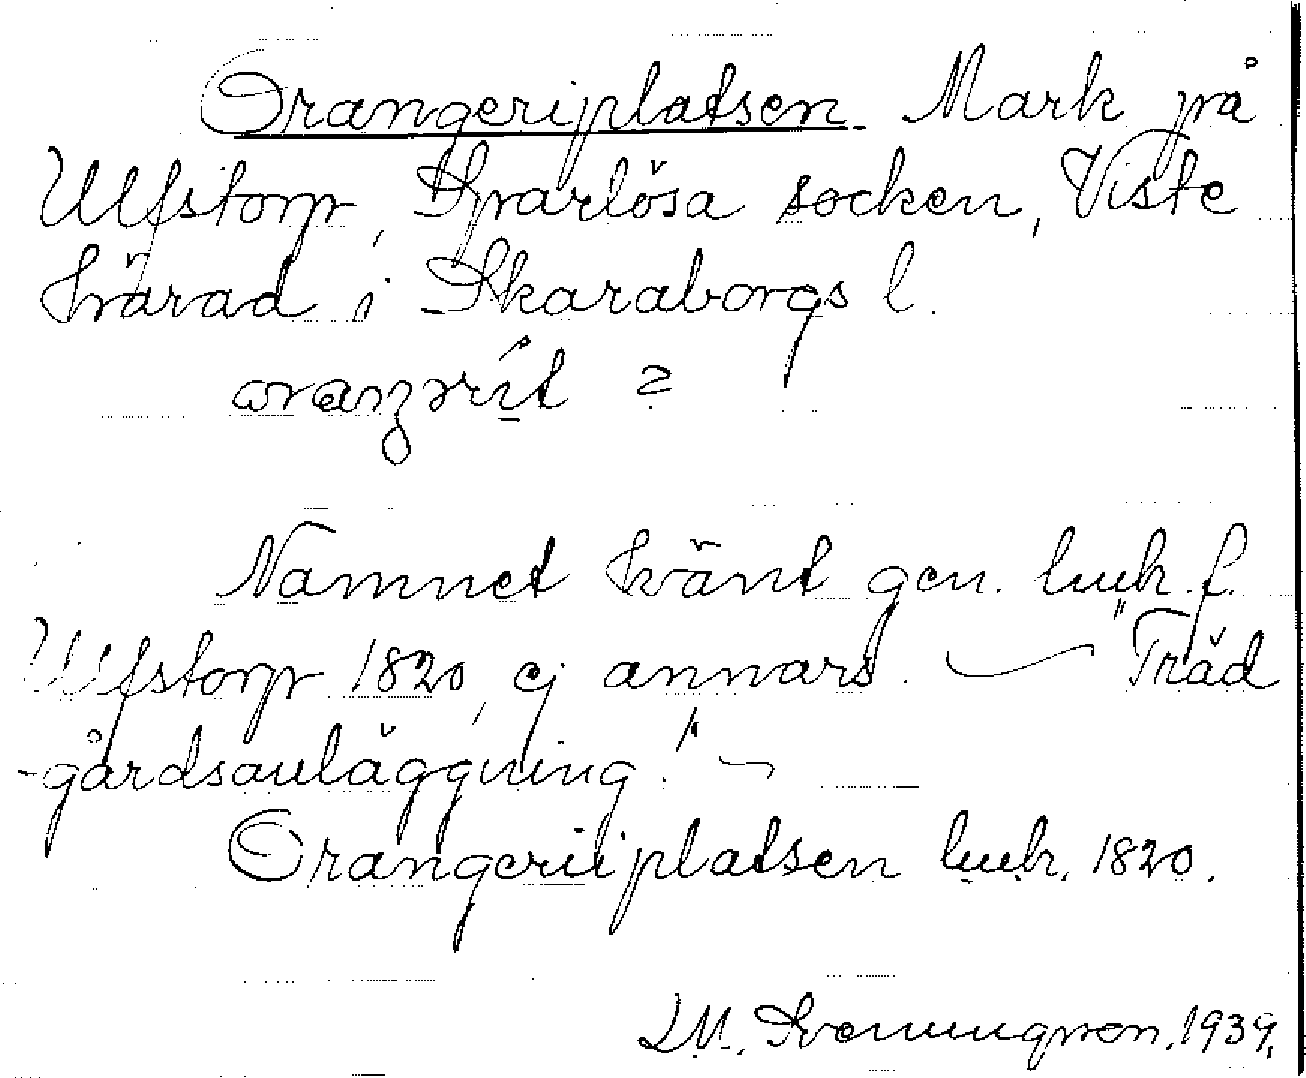 Orangeriplatsen. Mark på
Ulfstorp, Sparlösa socken, Viste
härad i Skaraborgs l.
Namnet känt gen. lmh. f.
Ulfstorp 1820, ej annars. — "Träd
-gårdsanläggning." —
Orangeriiplatsen lmh. 1820.
1939.